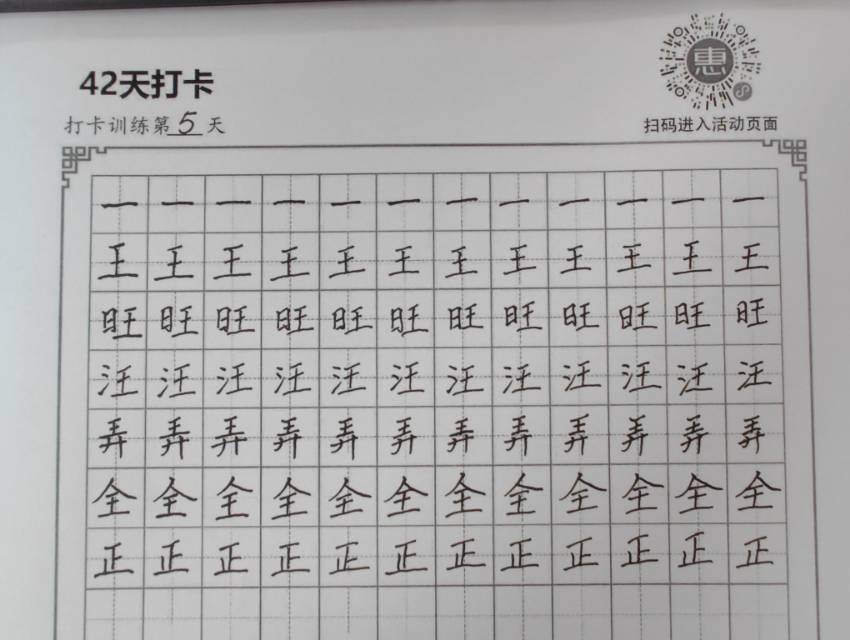 惠
42天打卡
打卡训练第5天
扫码进入活动页面
一一一一一一一一一一一一
王王王王王王王王王王王王
旺旺旺旺旺旺旺旺旺旺旺旺
汪汪汪汪汪汪汪汪汪汪汪汪
弄弄弄弄弄弄弄弄弄弄弄弄
全全全全全全全全全全全全
正正正正正正正正正正正正